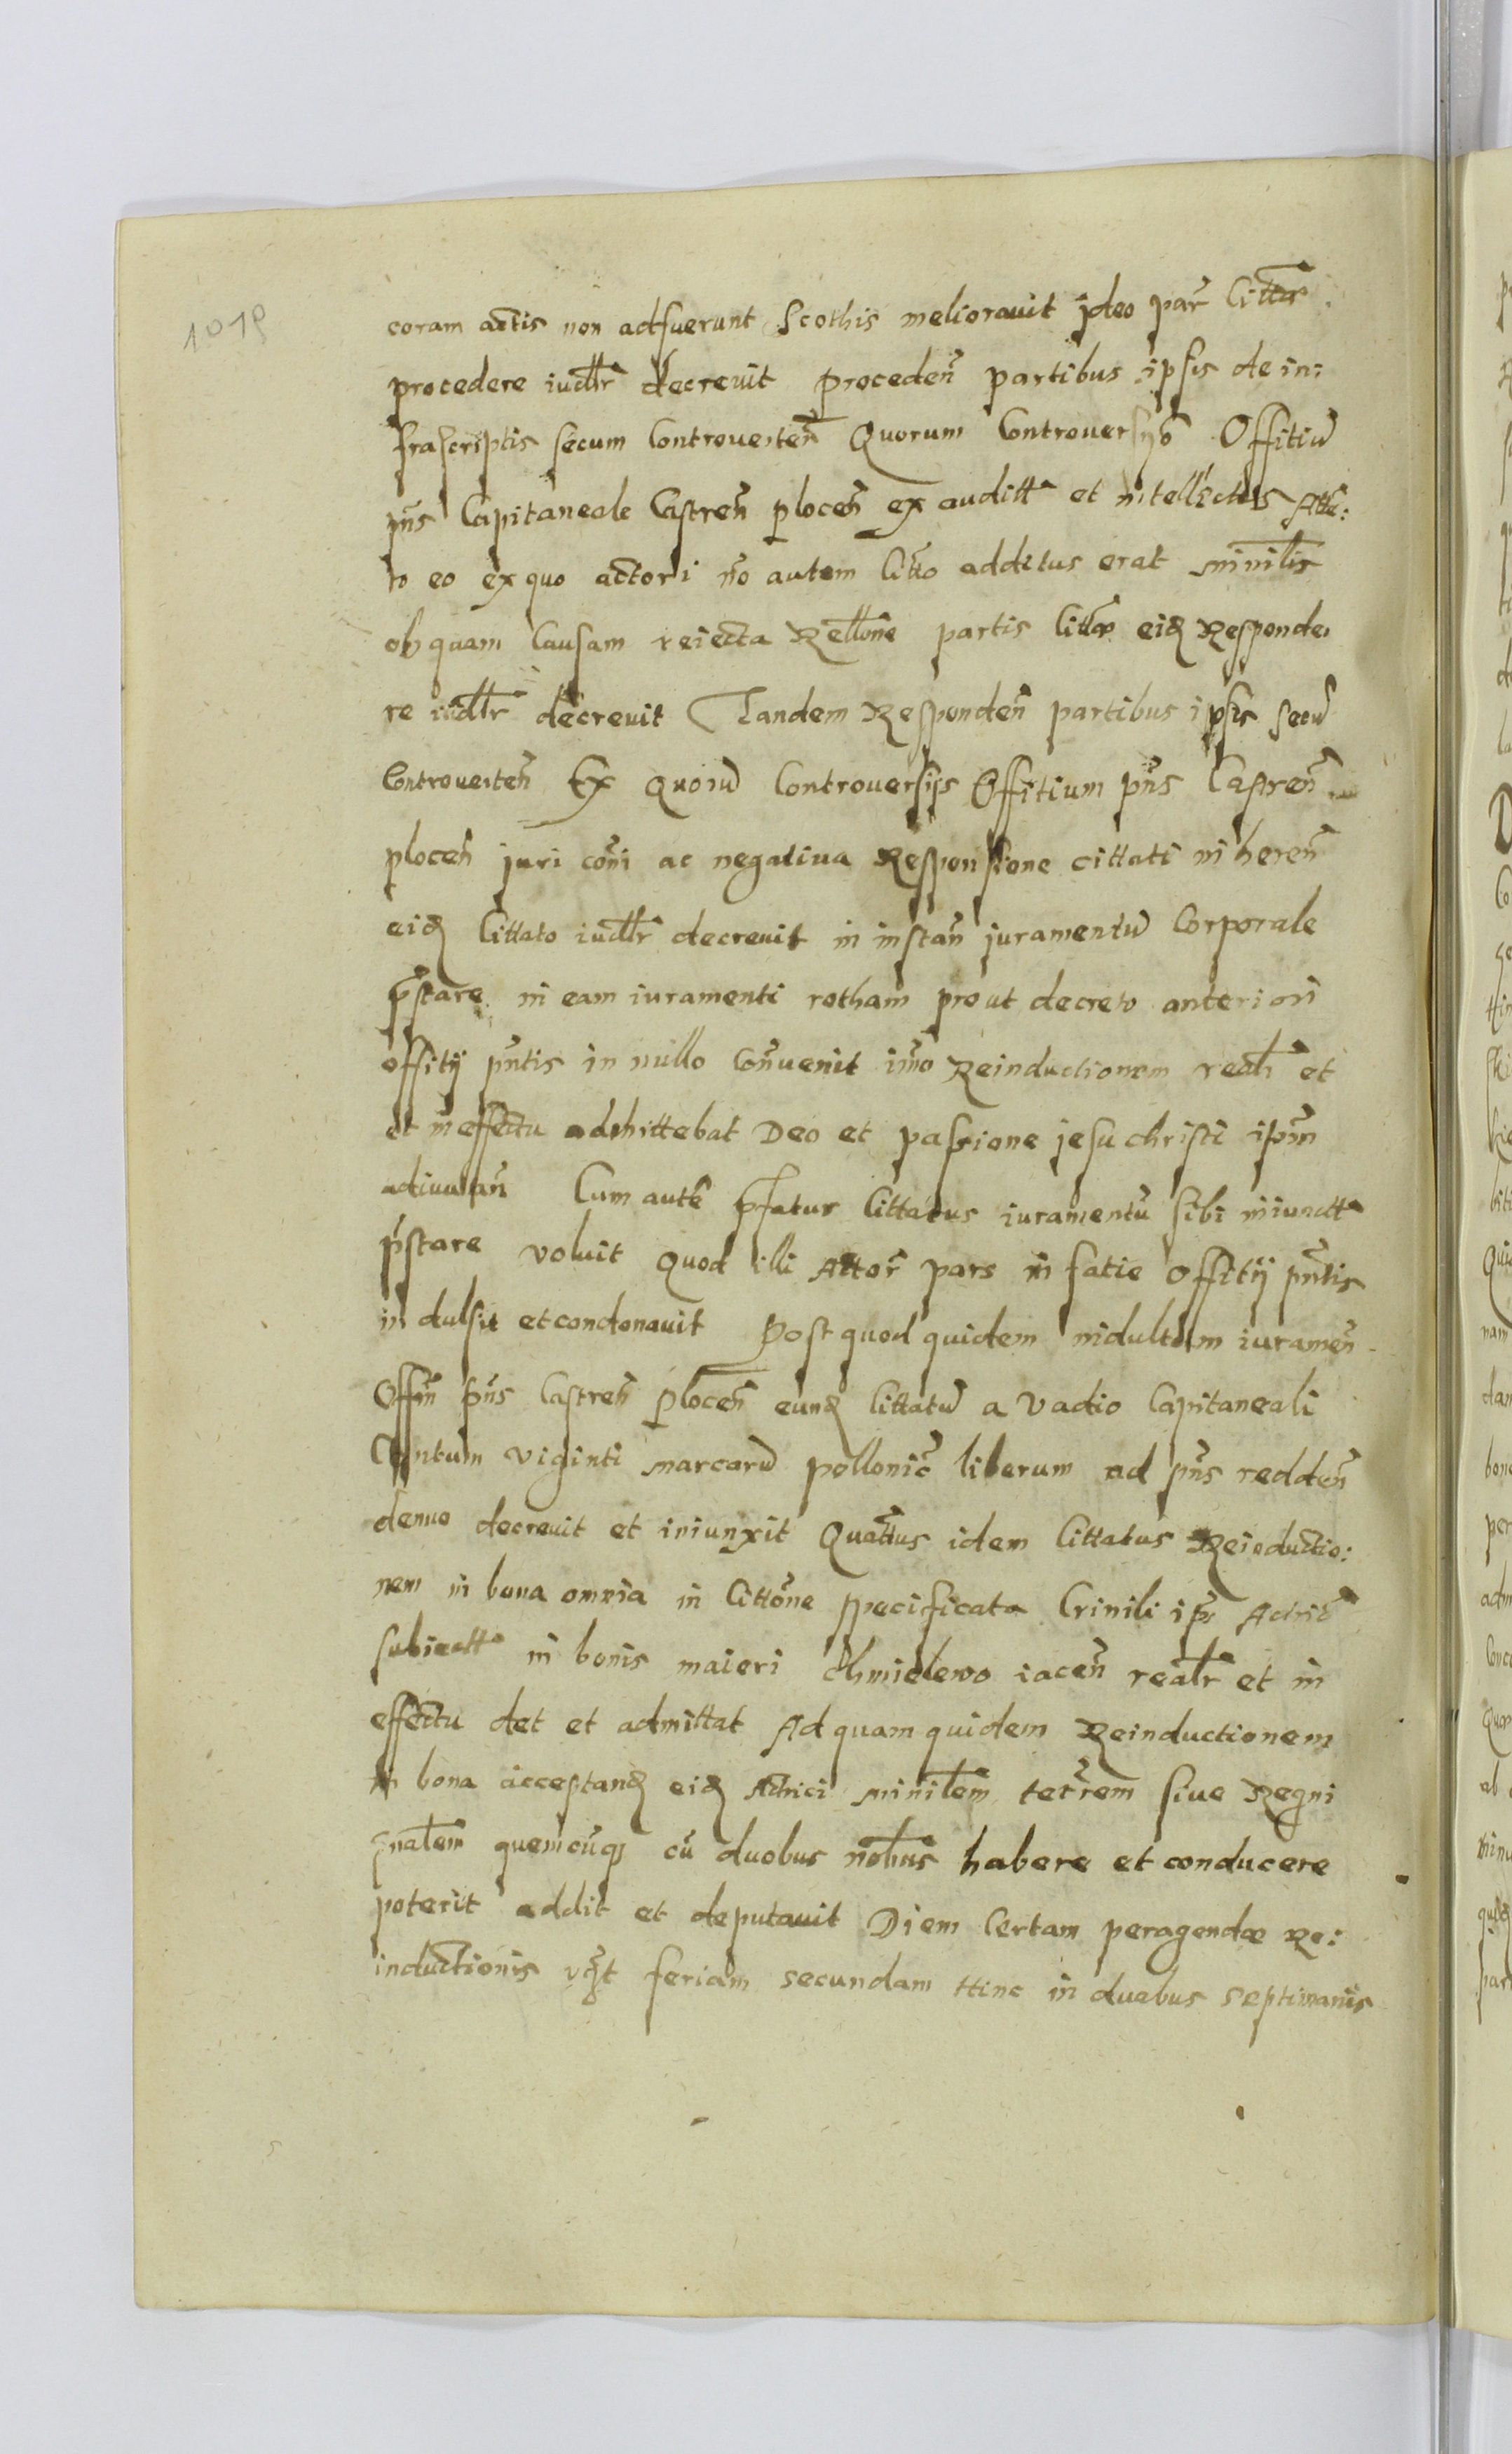 1019
coram actis non adfuerunt Scothis meliorauit ideo par̃ Citta͞r
procedere iudlr̃ decreuit Proceden̄ partibus ipsis de in:
frascriptis secum Controuerten̄ Quorum Controuersijs Offitiu͞
pn̄s Capitaneale Castren̄ plocen̄ ex auditt et intellectis Atte:
to eo ex quo actori no͞ autem Citto͞ additus erat minilis͞
ob quam Causam reiecta Rellone͞ partis Citta͞e eid Responde
re iudlr̃ decreuit Tandem Responden̄ partibus ipsis secu͞
Controuerten̄ Ex quoru͞ Controuersijs Offitium pn̄s Castren̄
plocen̄ juri co͞ni ac negatiua Responsione cittati inheren̄
eid Cittato iudlr̃ decreuit in instan̄ juramentu͞ Corporale
p͞stare in eam iuramenti rotham prout decreto anteriori
offitij pn̄tis in nullo Con͞uenit im͞o Reinductionem realr̃ et
et in effectu admittebat Deo et passione jesu christi ipsum͞
adiuuan̄ Cum aute͞ p͞fatus Cittatus iuramentu͞ sibi iniunctt
p͞stare voluit Quod illi Actor̃ pars in fatie Offitij pn̄tis
indulsit et condonauit Post quod quidem indultum iuramen̄
Offm̄ pn̄s Castren̄ Plocen̄ eund Cittatu͞ a vadio Capitaneali
Centum viginti marcaru͞ pollonic̄ liberum ad pn̄s redden̄
denuo decreuit et iniunxit Quat͞tus idem Cittatus Reinductio:
nem in bona omnia in Citto͞ne specificata Crinili ip͞s Actric͞
subiectt in bonis maieri Chmielewo iacen̄ realr̃ et in
effectu det et admittat Ad quam quidem Reinductionem
in bona acceptand eid Actrici minile͞m terr͞em siue Regni
gnale͞m quemcu͞q cu͞ duobus nob͞lius habere et conducere
poterit addit et deputauit Diem Certam peragendæ Re:
inductionis feriam secundam Hinc in duabus septimanis